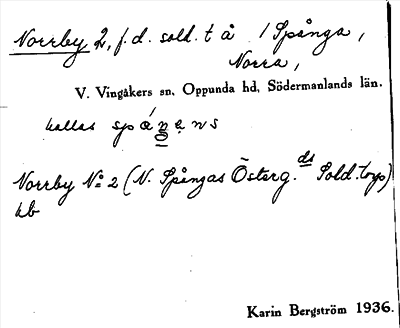 Norrby 2, f.d. sold. t å / Spånga,
Norra,
V. Vingåkers sn, Oppunda hd, Södermanlands län.
kallas
Norrby No 2 (N. Spångas Österg. ds Sold. torp)
kb
Karin Bergström 1936.